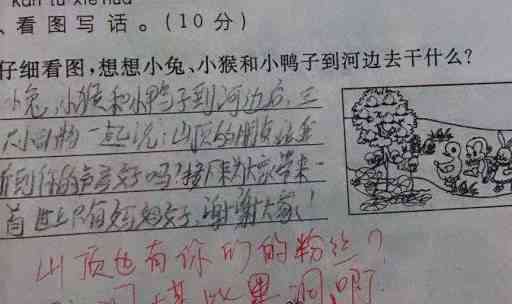 kàn tú xiě huà
、看图写话。(10分)
仔细看图,想想小兔、小猴和小鸭子到河边去干什么?
小兔、小猴和小鸭子到河边后,三
大小动物一起说:山顶的朋友
听到你的声音好吗?接下来为大家带来一
首世上只有妈妈好,谢谢大家!
山顶也有你们的粉丝?